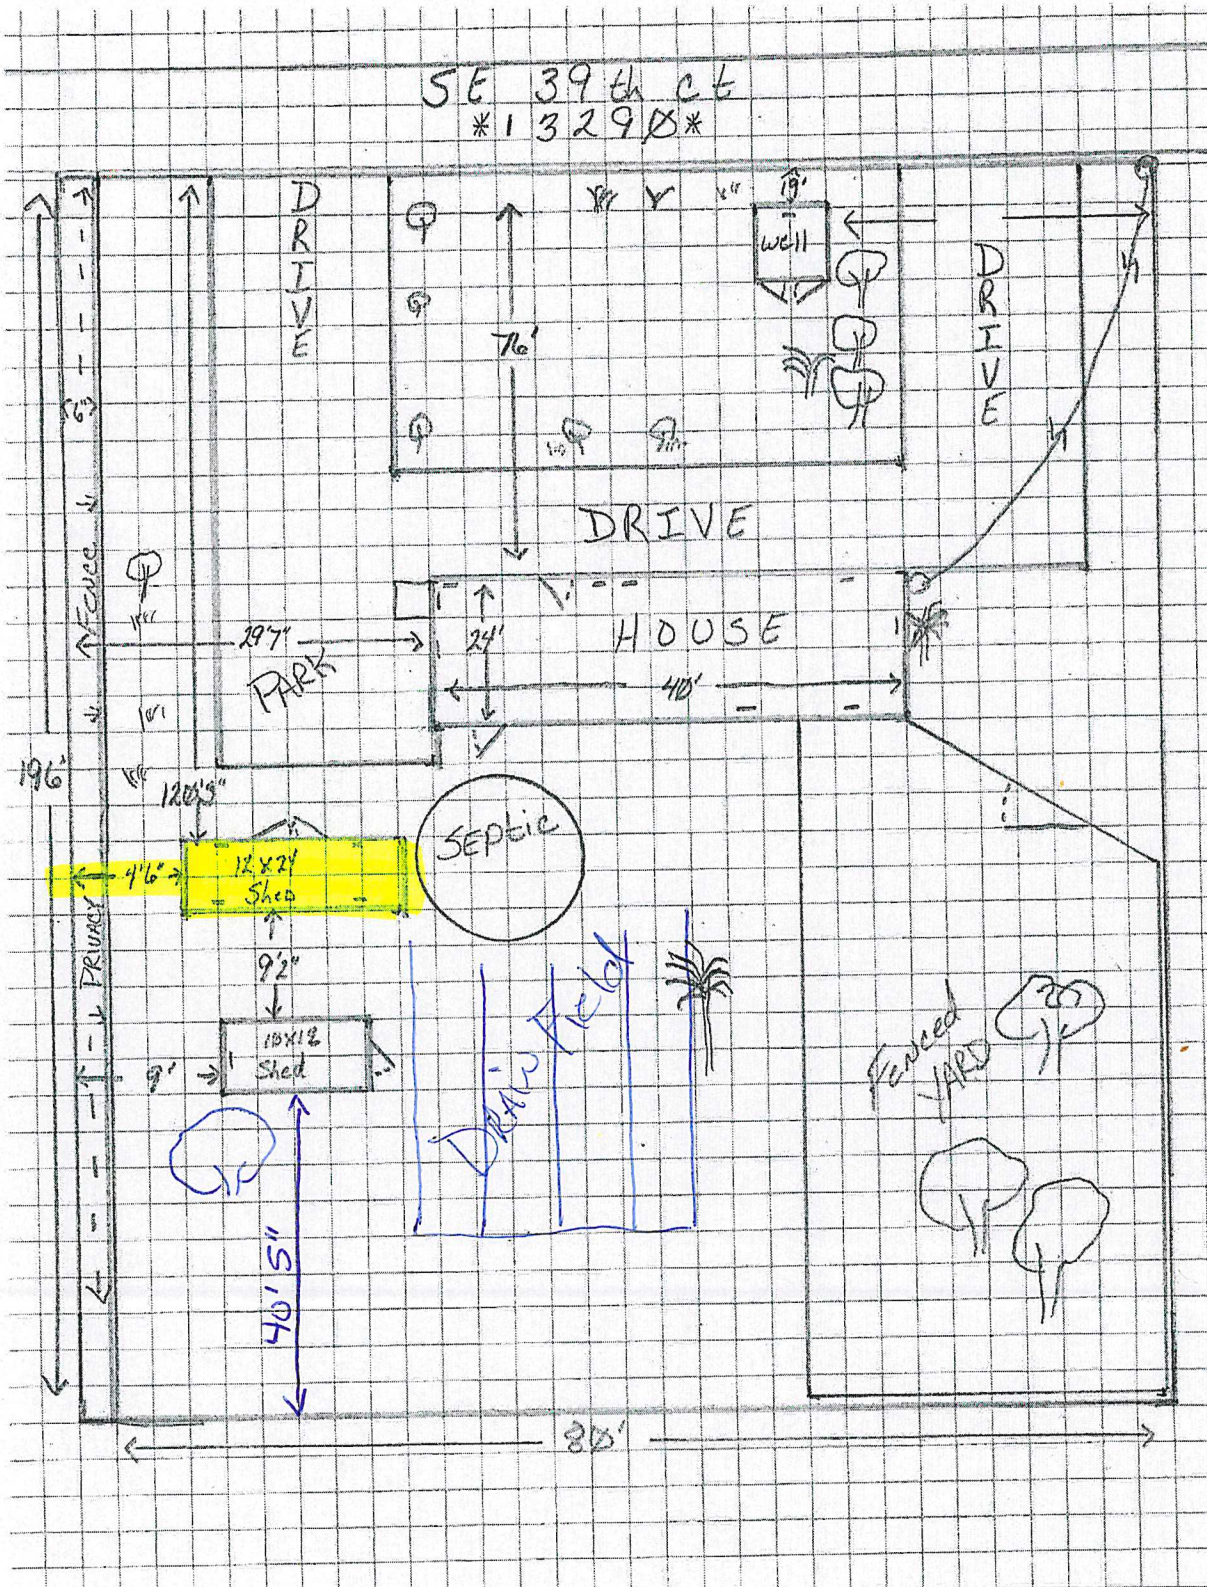 SE 39th ct
*13290*
DRIVE
19'
well
DRIVE
76'
6"
DRIVE
Fence
29'7"
PARK
24'
HOUSE
40'
196'
120'5"
SEPtic
4'6"
12x24
Shed
PRIVACY
9'2"
10x12
Shed
9'
DRAIN Field
Fenced
YARD
40'5"
80'